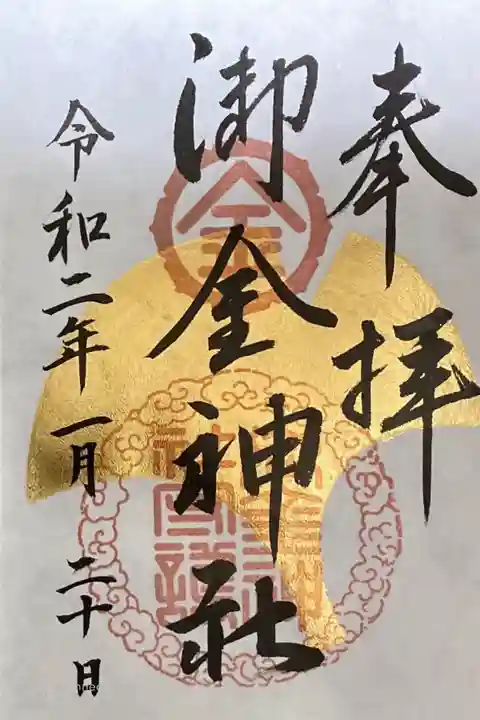 奉拝
御金神社
令和二年一月二十日
金